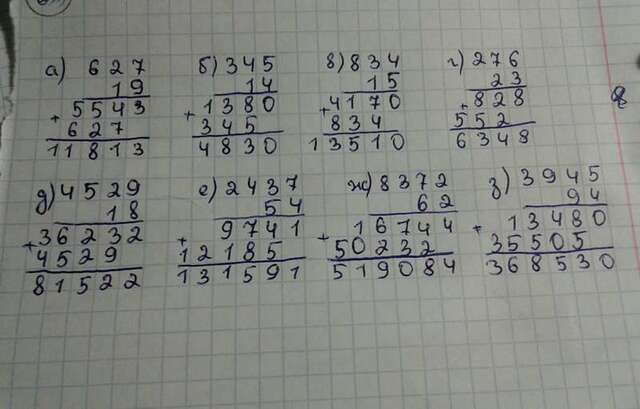 а) 627
19
+ 5543
627
11813
б) 345
14
+ 1380
345
4830
в) 834
15
+ 4170
834
13510
г) 276
23
+ 828
552
6348
д) 4529
18
+ 36232
4529
81522
е) 2437
54
+ 9741
12185
131591
ж) 8372
62
+ 16744
50232
519084
з) 3945
94
+ 13480
35505
368530